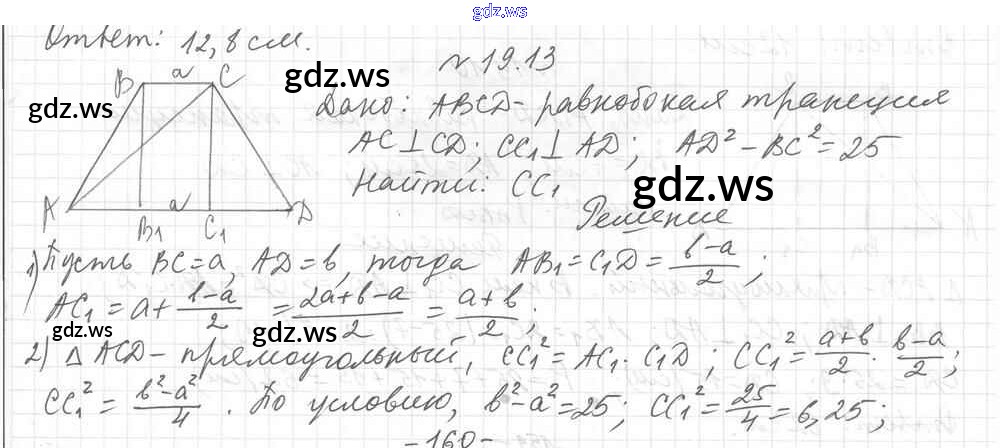 gdz.ws
Ответ: 12,8 см.
№ 19.13
B a C
gdz.ws
gdz.ws
Дано: ABCD - равнобокая трапеция
AC ⊥ CD; CC₁ ⊥ AD; AD² - BC² = 25
Найти: CC₁
gdz.ws
A a D
B₁ C₁
Решение
1) Пусть BC = a, AD = b, тогда AB₁ = C₁D = (b-a)/2;
AC₁ = a + (b-a)/2 = (2a+b-a)/2 = (a+b)/2;
gdz.ws
gdz.ws
2) △ ACD - прямоугольный, CC₁² = AC₁ · C₁D; CC₁² = (a+b)/2 · (b-a)/2;
CC₁² = (b²-a²)/4. По условию, b²-a² = 25; CC₁² = 25/4 = 6,25;
-160-